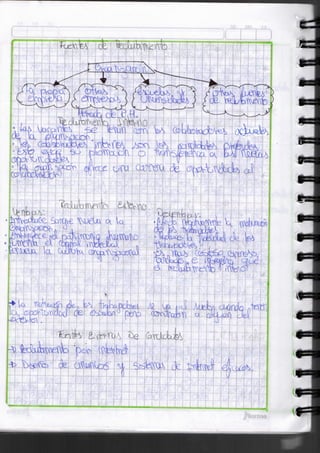 Fuentes de Reclutamiento
Organización
la propia empresa
otras empresas
escuelas y Universidades
Otras fuentes de reclutamiento
Mercado de R.H.
Reclutamiento Interno
• las vacantes se llenan con los colaboradores actuales
de la organización.
• los colaboradores internos son los candidatos preferidos
• Esto exige su promoción o transferencia a las nuevas
oportunidades
• la organización ofrece una carrera de oportunidades al
colaborador
Reclutamiento Externo
Ventajas:
• Introduce sangre nueva a la
organización
• Enriquece el patrimonio humano
• Aumenta el capital intelectual
• Renueva la cultura organizacional
Desventajas:
• Afecta negativamente la motivación
de los trabajadores
• Reduce la fidelidad de los
trabajadores
• es mas costoso, oneroso,
tardado e inseguro que
el reclutamiento interno
→ la motivación de los trabajadores se va al suelo cuando tenían
la oportunidad de escalar pero contratan a alguien del
exterior.
Fuentes Externas De Candidatos
Reclutamiento por internet
Diseño de anuncios y sistemas de internet eficaces.